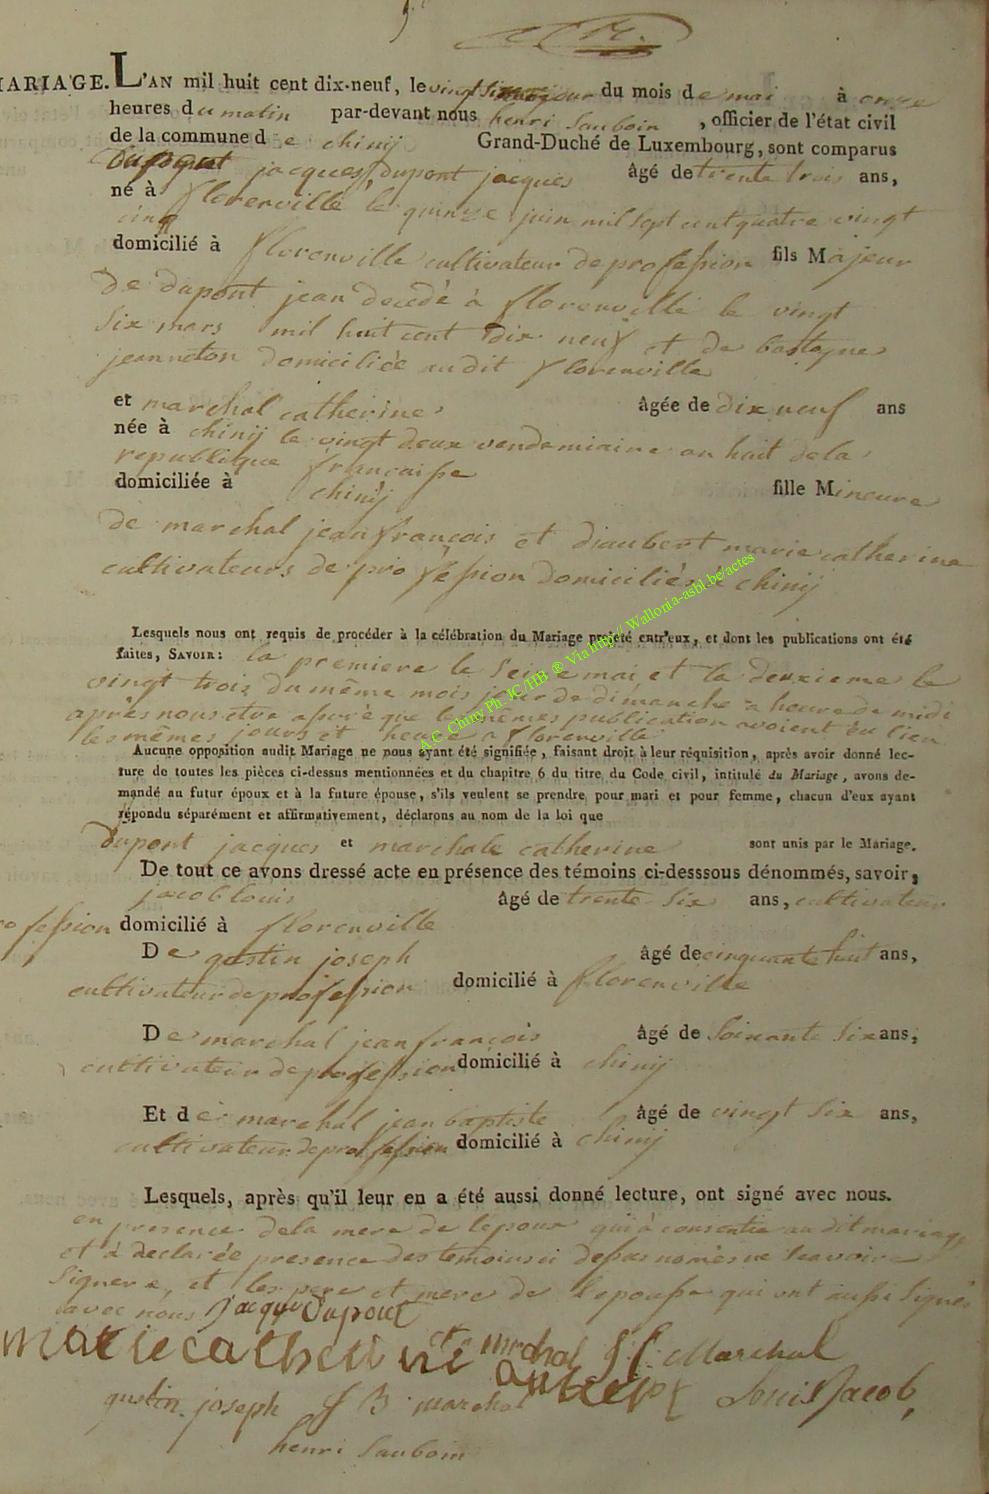 N° 12.
MARIAGE. L'AN mil huit cent dix-neuf, le vingt six jour du mois de mai à onze
heures du matin par-devant nous henri Sauboin, officier de l'état civil
de la commune de chinij Grand-Duché de Luxembourg, sont comparus
jacques dupont jacques âgé de trente trois ans,
né à florenville le quinze juin mil sept cent quatre vingt
cinq
domicilié à florenville cultivateur de profession fils Majeur
De dupont jean decedé à florenville le vingt
six mars mil huit cent dix neuf et de bastogne
jeanneton domiciliée audit florenville
et marchal catherine âgée de dix neuf ans
née à chinij le vingt deux vendemiaire an huit dela
republique francaise
domiciliée à chinij fille Mineure
de marchal jean françois et d'aubert marie catherine
cultivateurs de profession domiciliés à chinij
Lesquels nous ont requis de procéder à la célébration du Mariage projeté entr'eux, et dont les publications ont été
faites, SAVOIR: la premiere le Seize mai et la deuxieme le
vingt trois du même mois jour de dimanche a heure de midi
après nous etre assuré que les mêmes publication avoient eu lieu
les mêmes jours et heure a florenville
Aucune opposition audit Mariage ne nous ayant été signifiée, faisant droit à leur réquisition, après avoir donné lec-
ture de toutes les pièces ci-dessus mentionnées et du chapitre 6 du titre du Code civil, intitulé du Mariage, avons de-
mandé au futur époux et à la future épouse, s'ils veulent se prendre pour mari et pour femme, chacun d'eux ayant
répondu séparément et affirmativement, déclarons au nom de la loi que
dupont jacques et marchale catherine sont unis par le Mariage.
De tout ce avons dressé acte en présence des témoins ci-desssous dénommés, savoir,
jacob louis âgé de trente six ans, cultivateur
profession domicilié à florenville
De gustin joseph âgé de cinquante huit ans,
cultivateur de profession domicilié à florenville
De marchal jean françois âgé de Soixante Six ans,
cultivateur de profession domicilié à chinij
Et de marchal jean baptiste âgé de vingt six ans,
cultivateur de profession domicilié à chinij
Lesquels, après qu'il leur en a été aussi donné lecture, ont signé avec nous.
en presence dela mere de l'epoux qui à consentie au dit mariage
et à declarée presence des temoins ci només ne scavoire
Signere, et les pere et mere de l'epouse qui ont aussi Signés
avec nous Jacque Dupont
marie catherine marchal J f Marchal
aubert
gustin joseph J B marchal Louis Jacob,
henri Sauboin
A.C. Chiny Ph. JC/HB ® Via http// Wallonia-asbl.be/actes